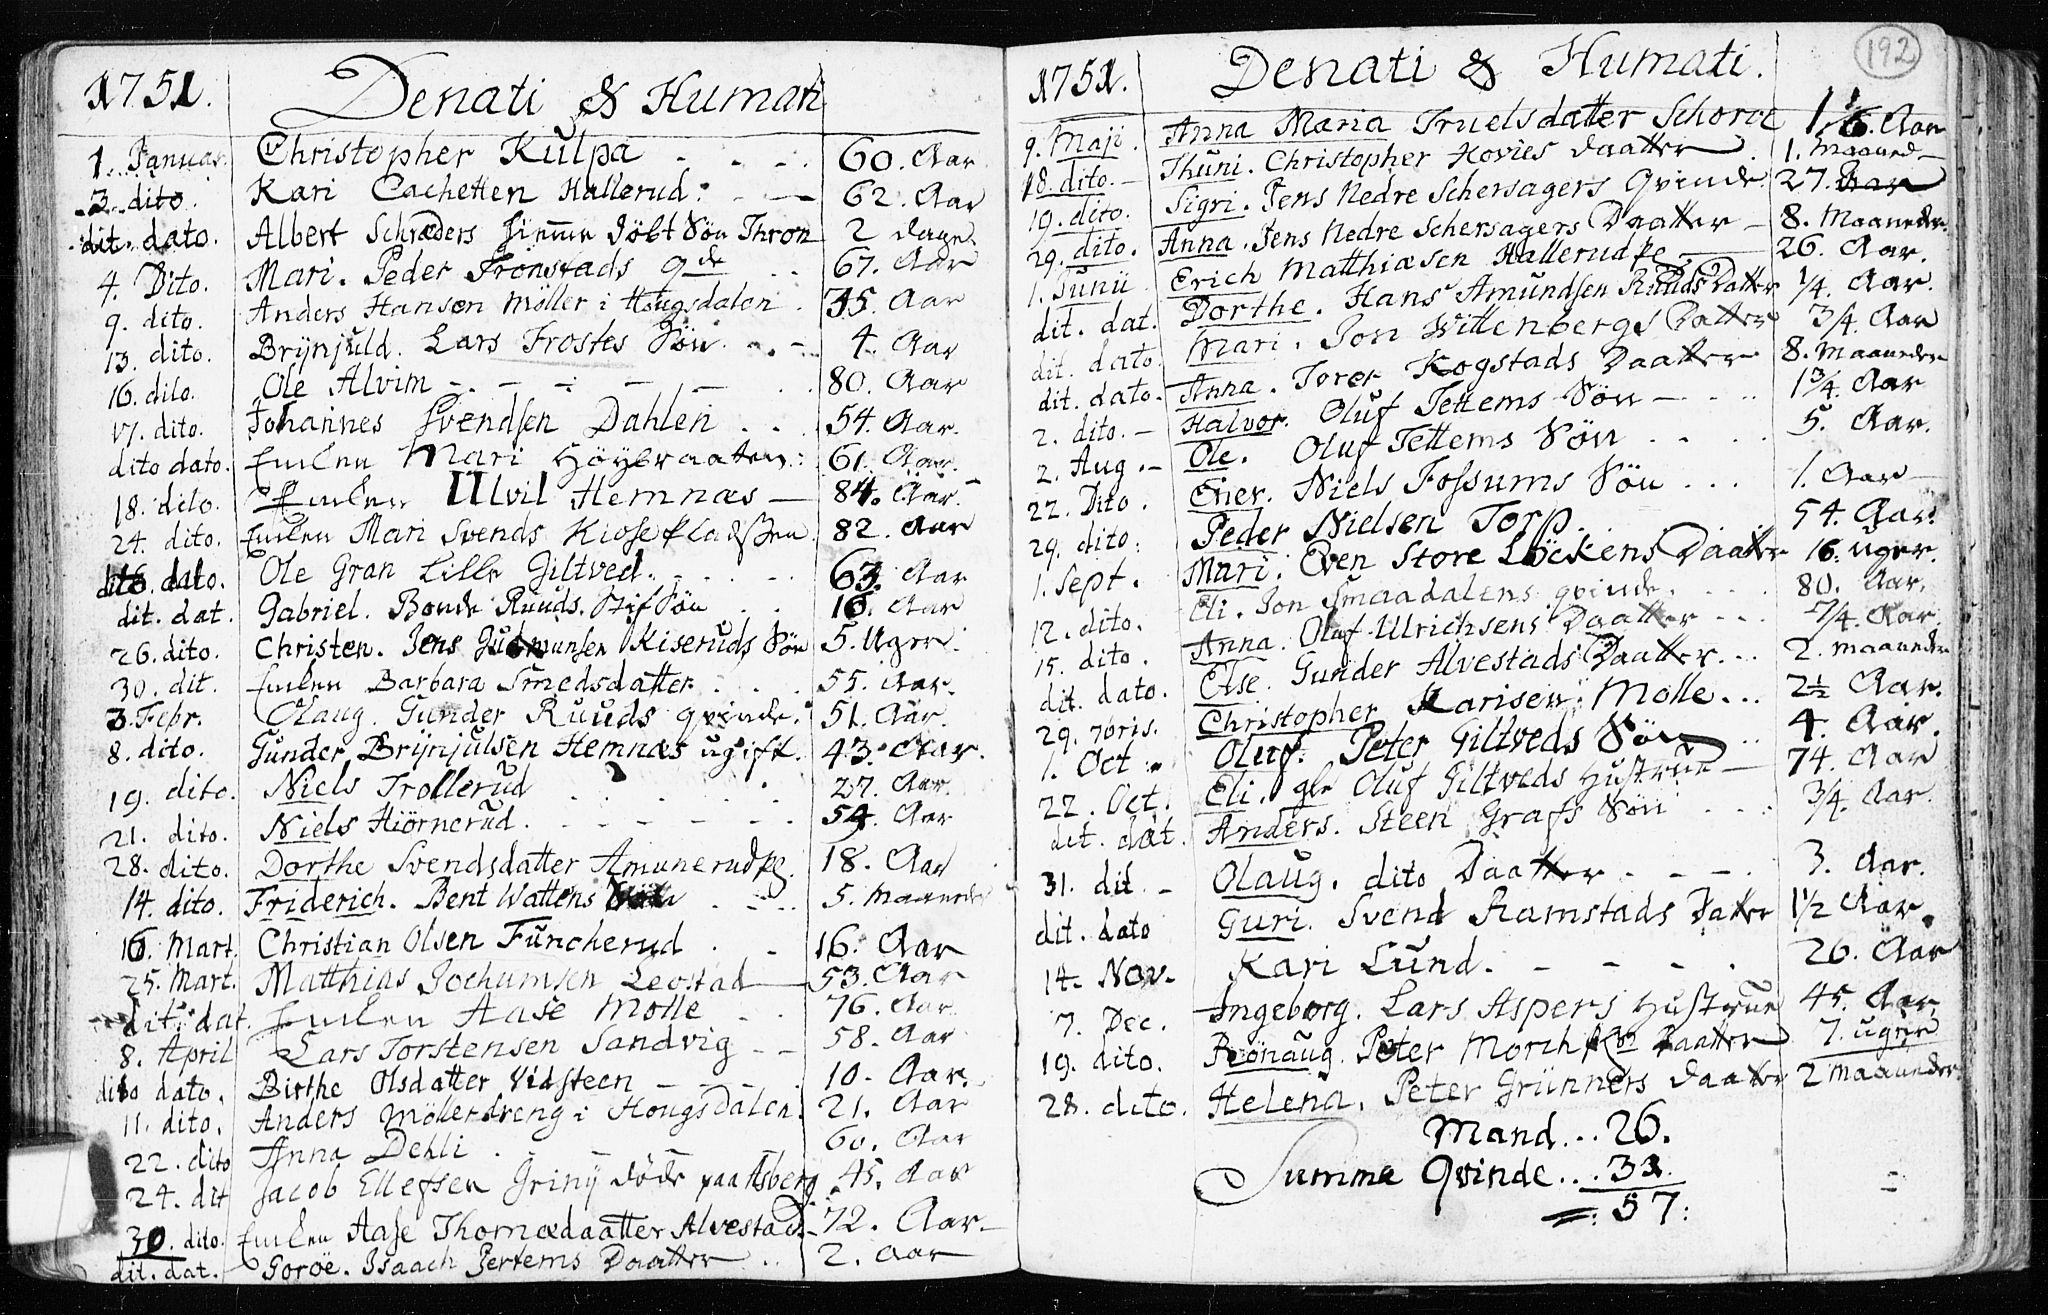 1751. Denati & Humati
1. Januar. Christopher Kulpa - - - 60. Aar
3. dito. Kari Hallerud. - 62. Aar
dit. dato. Albert Schræders döbt Sön Thron 2 dage.
4. Dito. Mari. Peder Tronstads qde .. 67. Aar
9. dito. Anders Hansen Möller i Hougsdalen. 35. Aar
13. dito. Brÿnjuld. Lars Frostes Sön. . . - 4. Aar
16. dito. Ole Alvim - . - - - - . . 80. Aar
17. dito. Johannes Svendsen Dahlen . . . 54. Aar.
dito dato. Enchen Mari Höÿbraaten: 61. Aar.
18. dito. Enchen Ulvil Hemnæs - 84. Aar.
24. dito. Enchen Mari Svends 82. Aar
dito dato. Ole Gran Lille Giltved. . . . . 63. Aar
dit. dat. Gabriel. Bonde Ruuds. Stifsön . . 16. Aar
26. dito. Christen. Jens Gudmunsen Kiseruds Sön 5. Uger.
30. dit. Enchen Barbara Smedsdatter . . . 55. Aar.
3. Febr. Olaug. Gunder Ruuds qvinde. 51. Aar.
8. dito. Gunder Brÿnjulsen Hemnæs ugift. 43. Aar.
19. dito. Niels Trollerud . . . . . 27. Aar.
21. dito. Niels Hiörnerud. - - - - - 54. Aar
28. dito. Dorthe Svendsdatter Amunerudpg. 18. Aar
14. dito. Friderich. Bent Wattens Sön . . . 5. Maaneder
16. Mart. Christian Olsen Funcherud . - 16. Aar
25. Mart. Matthias Jochumsen Leostad - 53. Aar
dit. dat. Enchen Aase Molle . . 76. Aar
8. April Lars Torstensen Sandvig - - 58. Aar
dito dato. Birthe Olsdatter Vidsteen - - - . 10. Aar.
11. dito. Anders Möllerdreng i Hougsdalen. 21. Aar
22. dito Anna Dehli . - - - - 60. Aar
24. dit Jacob Ellefsen Grinÿ döde paa Asberg. 45. Aar
30. dito. Enchen Aase Thomædaatter Alvestad. - 72. Aar. -
dit. dat. Goroe. Isaach Daatter .. 2. Aar
192
1751. Denati & Humati.
9. Maji. Anna Maria Truelsdatter Aar
18. dito. - Thuni. Christopher Hovies Daatter. 1. Maaned -
19. dito. Sigri. Jens Nedre Schersagers Qvinde. 27. Aar
29. dito. Anna. Jens Nedre Schersagers Daatter - 8. Maaneder.
1. Junii Erich Matthiæsen Hallerudpe - 26. Aar.
dit. dat. Dorthe. Hans Amundsen Ruuds Datter 1/4. Aar.
dit. dato. Mari. Jon Wittenbergs Datter 3/4. Aar
dit. dato. Anna. Torer Kogstads Daatter 8. Maaneder
2. dito. - Halvor. Oluf Tettems Sön - . . . 1 3/4. Aar
2. Aug. - Ole. Oluf Tettems Sön . . . . 5. Aar.
22. Dito. Niels Fossums Sön . . . 1. Aar -
29. dito. Peder Nielsen Torp. 54. Aar.
1. Sept. Mari. Even Store Löckens Daatter 16. uger.
12. dito. Eli. Jon Smaadalens qvinde. . . . 80. Aar.
15. dito. Anna. Oluf Ulrichsens Daatter - . . 7/4. Aar
dit. dato. Else. Gunder Alvestads Daatter. . . 2. Maaneder
29. 7bris. Christopher Karisen Molle . . . 2 1/2 Aar.
1. Oct. Oluf. Peter Giltveds Sön . . 4. Aar.
22. Oct. Eli. gle Oluf Giltveds Hustrue - 74. Aar
dit. dat. Anders. Steen Grafs Sön . . . 3/4. Aar.
31. dit - Olaug. dito Daatter - - - . 3. Aar.
dit. dato Guri. Svend Ramstads Datter 1 1/2 Aar.
14. Nov. Kari Lund. - - - . 26. Aar
7. Dec. Ingeborg. Lars Aspers Hustrue 45. Aar
19. dito. Rönaug. Peter Morch Daatter 7. uger
28. dito. Helena. Peter Grünners Daatter 2 Maaneder
Mand . . 26.
Summa Qvinde . . . 31.
57: